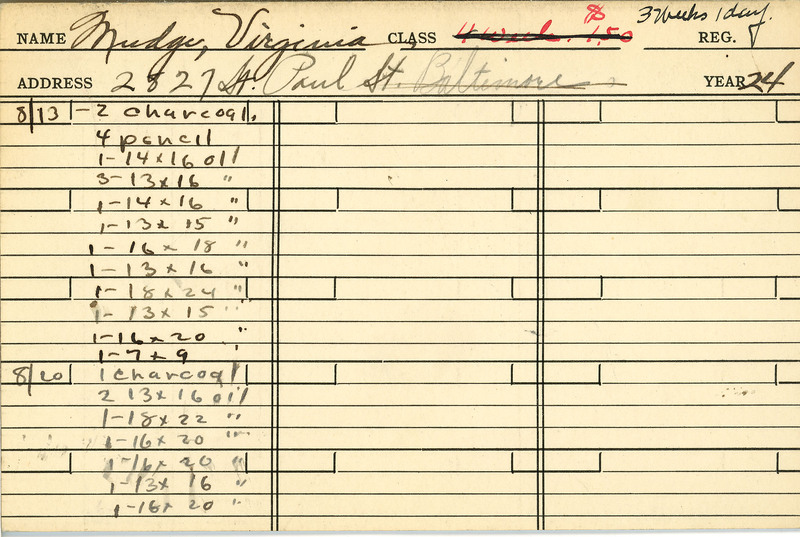 NAME Mudge, Virginia CLASS 4 week. $1.50 3 Weeks 1 day. REG.
ADDRESS 2827 St. Paul St. Baltimore YEAR 24
8/13 -2 charcoal.
4 pencil
1-14x16 oil
3-13x16 "
1-14x16 "
1-13x15 "
1-16x18 "
1-13x16 "
1-18x24 "
1-13x15 "
1-16x20 "
1-7x9 "
8/20 1 charcoal
2 13x16 oil
1-18x22 "
1-16x20 "
1-16x20 "
1-13x16 "
1-16x20 "